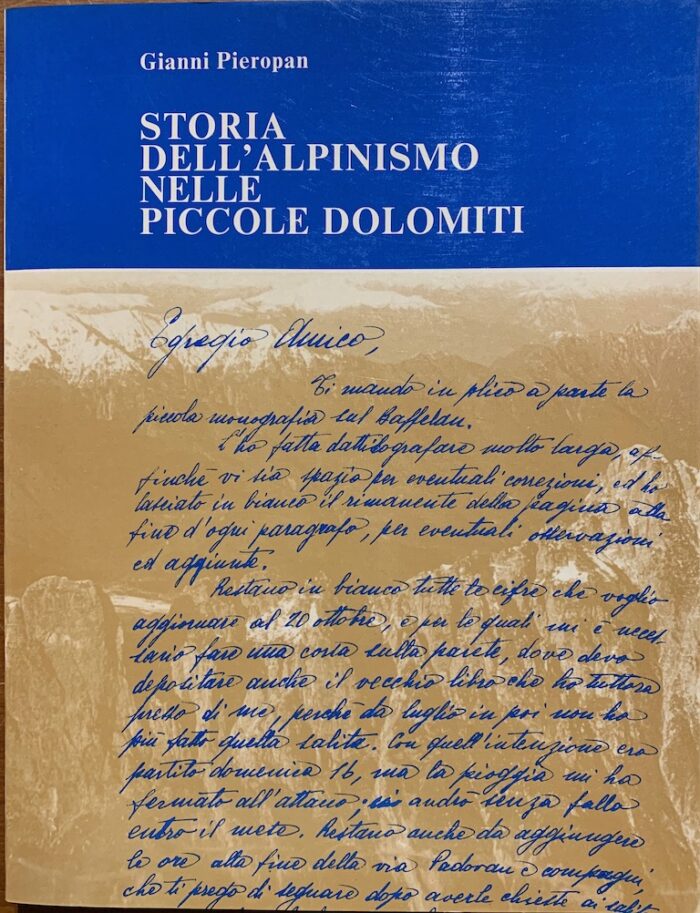 Gianni Pieropan
STORIA
DELL'ALPINISMO
NELLE
PICCOLE DOLOMITI
Egregio Amico,
Ti mando in plico a parte la
piccola monografia sul Baffelan.
L'ho fatta dattilografare molto larga, af-
finchè vi sia spazio per eventuali correzioni, ed ho
lasciato in bianco il rimanente della pagina alla
fine d'ogni paragrafo, per eventuali osservazioni
ed aggiunte.
Restano in bianco tutte le cifre che voglio
aggiornare al 20 ottobre, e per le quali mi è neces-
sario fare una corsa sulla parete, dove devo
depositare anche il vecchio libro che ho tuttora
presso di me, perchè da luglio in poi non ho
più fatto quella salita. Con quell'intenzione ero
partito domenica 16, ma la pioggia mi ha
fermato all'attacco; andrò senza fallo
entro il mese. Restano anche da aggiungere
le ore alla fine della via Padovan e compagni,
che ti prego di segnare dopo averle chieste ai salit